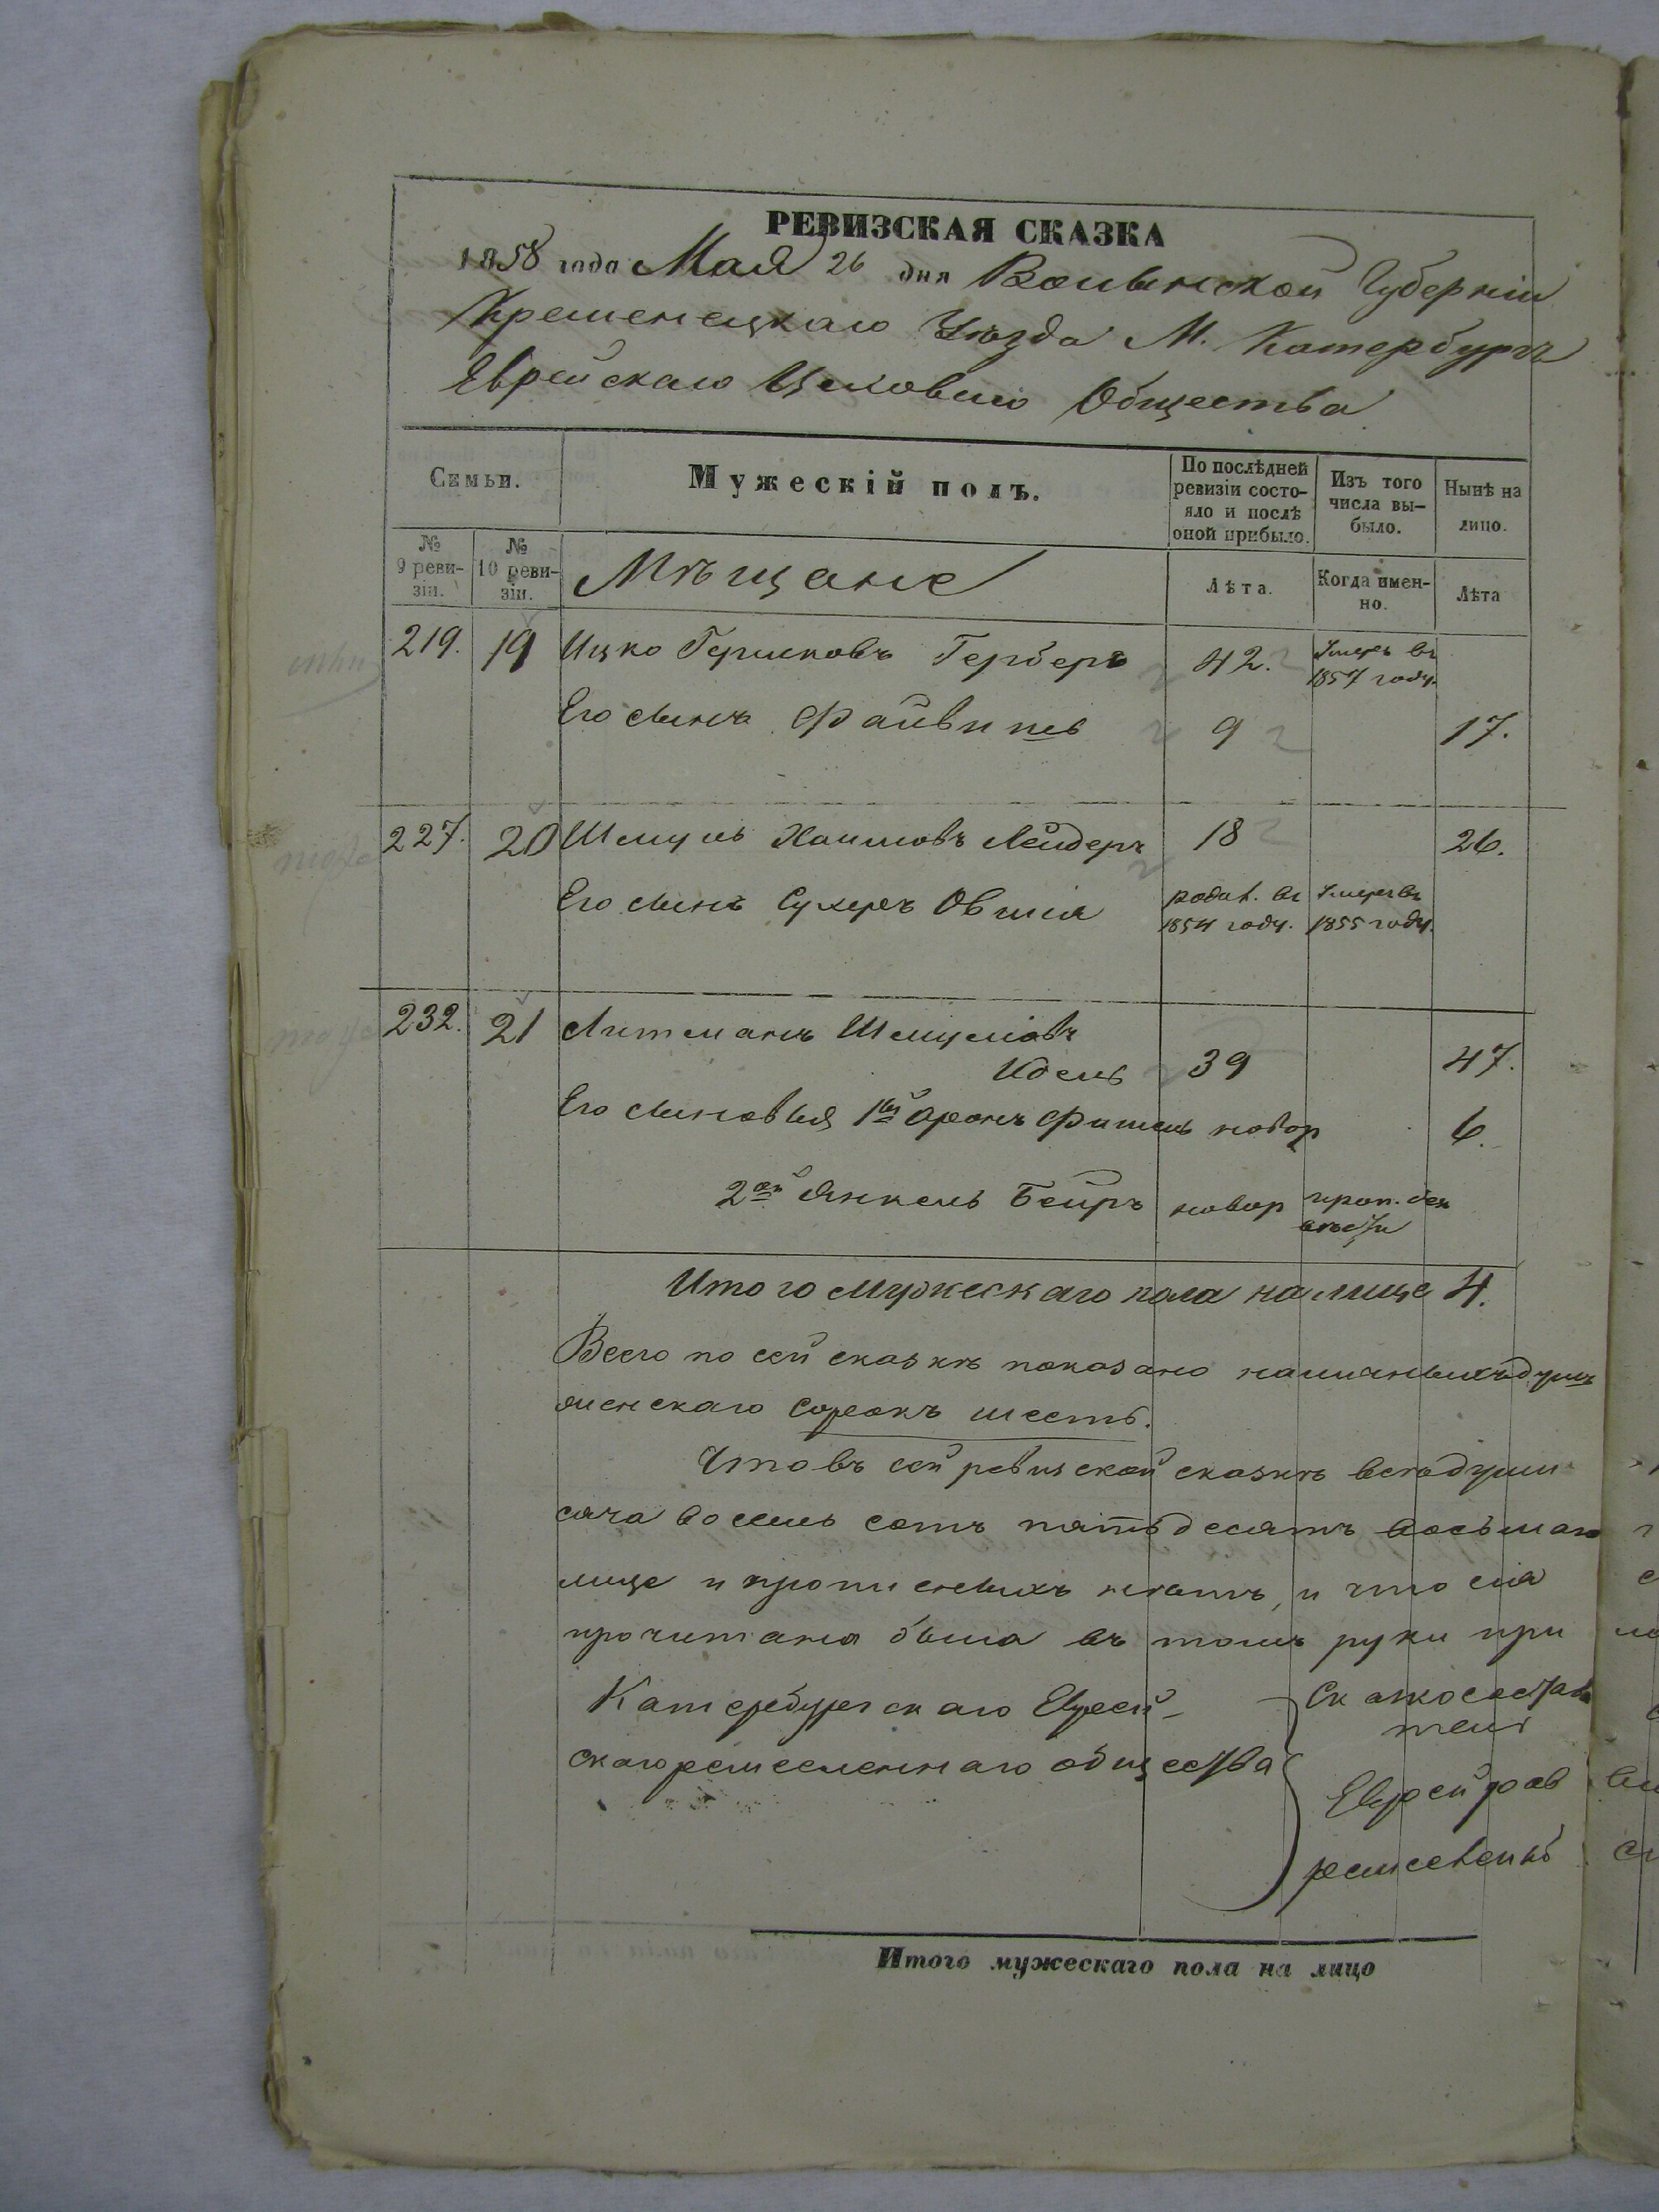 РЕВИЗСКАЯ СКАЗКА
1858 года Мая 26 дня Волынской Губерніи
Кременецкаго Уѣзда М. Катербургъ
Еврейскаго Цеховаго Общества
Семьи.
Мужескій полъ.
По послѣдней ревизіи состояло и послѣ оной прибыло.
Изъ того числа выбыло.
Нынѣ на лицо.
№ 9 ревизіи.
№ 10 ревизіи.
Мѣщане
Лѣта.
Когда именно.
Лѣта
219. 19 Ицко Гершковъ Герберъ 42. Умеръ въ 1857 году.
Его сынъ Файвишь 9 17.
227. 20 Шмуль Хаимовъ Лейдеръ 18 26.
Его сынъ Сухеръ Овшія родил. въ 1854 году. Умеръ въ 1855 году.
232. 21 Литманъ Шмулювъ
Идель 39 47.
Его сыновья 1й Аронъ Фишель новор 6.
2й Янкель Бейръ новор проп. безъ вѣсти
Итого мужескаго пола на лице 4.
Всего по сей сказкѣ показано наличныхъ душъ
женскаго сорокъ шесть.
Что въ сей ревизской сказкѣ всѣ души
сяча восемь сотъ пятьдесятъ восьмаго
лице и прописныхъ нѣтъ, и что сія
прочитана была въ томъ руки при
Катербургскаго Еврей-
скаго ремесленнаго общества
Сказкосостави
тели
Еврей
Итого мужескаго пола на лицо